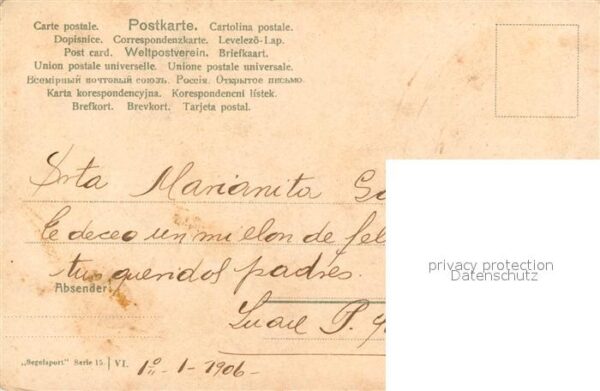 Carte postale. Postkarte. Cartolina postale.
Dopisnice. Correspondenzkarte. Levelező-Lap.
Post card. Weltpostverein. Briefkaart.
Union postale universelle. Unione postale universale.
Всемірный почтовый союзъ. Россія. Открытое письмо.
Karta korespondencyjna. Korespondencni lístek.
Brefkort. Brevkort. Tarjeta postal.
Srta Marianita
Le deceo un mi elon de fel
tus queridos padres.
Absender:
P.
„Segelsport" Serie 15. VI.
1º - 1 - 1906 -
privacy protection
Datenschutz